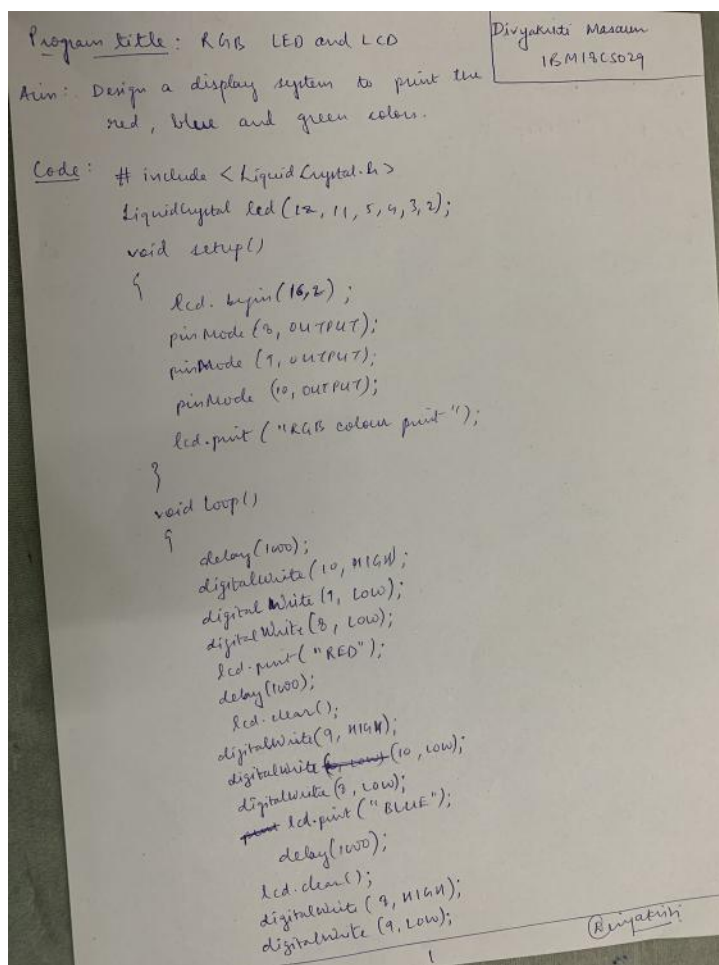 Program title: RGB LED and LCD
Divyakriti Masaun
1BM18CS029
Aim: Design a display system to print the
red, blue and green colors.
Code: # include <LiquidCrystal.h>
LiquidCrystal lcd(12, 11, 5, 4, 3, 2);
void setup()
{
lcd. begin(16,2);
pinMode (8, OUTPUT);
pinMode (9, OUTPUT);
pinMode (10, OUTPUT);
lcd.print ("RGB colour print");
}
void loop()
{
delay(1000);
digitalWrite(10, HIGH);
digitalWrite (9, LOW);
digitalWrite(8, LOW);
lcd.print("RED");
delay(1000);
lcd.clear();
digitalWrite(9, HIGH);
digitalWrite (10, LOW);
digitalWrite (8, LOW);
lcd.print("BLUE");
delay(1000);
lcd.clear();
digitalWrite (8, HIGH);
digitalWrite (9, LOW);
1
Divyakriti